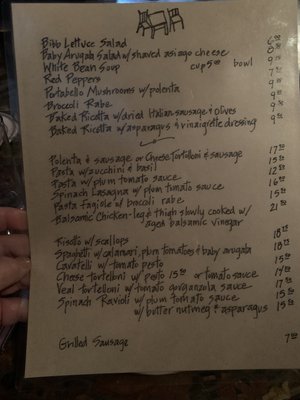 Bibb Lettuce Salad 6⁰⁰
Baby Arugula Salad w/shaved asiago cheese 8⁰⁰
White Bean Soup cup 5⁰⁰ bowl 9⁰⁰
Red Peppers 7⁰⁰
Portabello Mushrooms w/polenta 9⁰⁰
Broccoli Rabe 9⁰⁰
Baked Ricotta w/dried Italian sausage & olives 9⁰⁰
Baked Ricotta w/asparagus & vinaigrette dressing 9⁰⁰
Polenta & sausage or Cheese Tortelloni & sausage 17⁰⁰
Pasta w/zucchini & basil 15⁰⁰
Pasta w/plum tomato sauce 12⁰⁰
Spinach Lasagna w/plum tomato sauce 16⁰⁰
Pasta Fagiole w/broccoli rabe 15⁰⁰
Balsamic Chicken-leg & thigh slowly cooked w/ 21⁰⁰
aged balsamic vinegar
Risotto w/scallops 18⁰⁰
Spaghetti w/calamari, plum tomatoes & baby arugula 18⁰⁰
Cavatelli w/tomato pesto 15⁰⁰
Cheese tortelloni w/pesto 15⁰⁰ or tomato sauce 14⁰⁰
Veal tortelloni w/tomato gorgonzola sauce 17⁰⁰
Spinach Ravioli w/plum tomato sauce 15⁰⁰
w/butter nutmeg & asparagus 15⁰⁰
Grilled Sausage 7⁰⁰